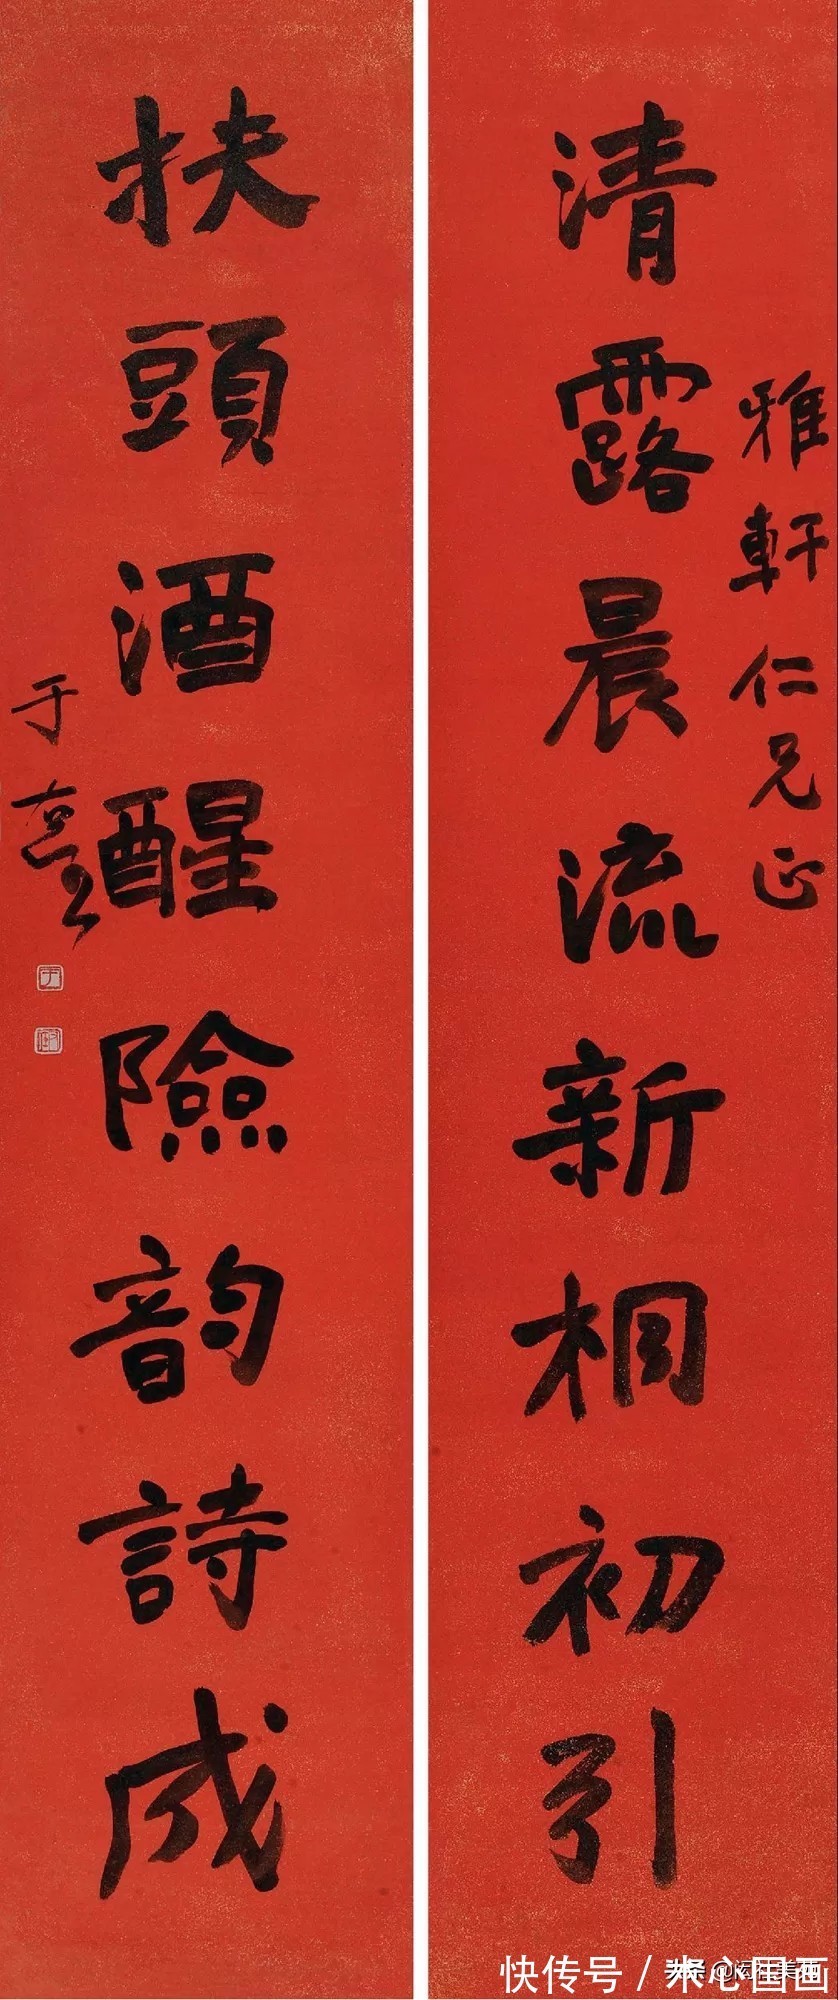 雅軒仁兄正
清露晨流新桐初引
扶頭酒醒險韵詩成
于
快传号 / 米心国画